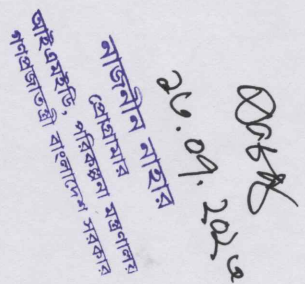 ২৩.০৭.২০২৩
নাজনীন নাহার
প্রোগ্রামার
আইএমইডি, পরিকল্পনা মন্ত্রণালয়
গণপ্রজাতন্ত্রী বাংলাদেশ সরকার